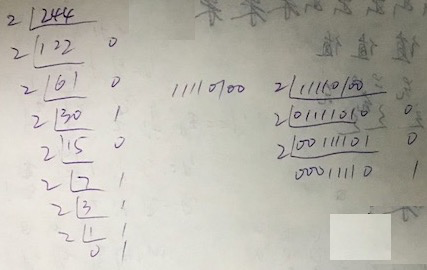 2 244
2 122 0
2 61 0
2 30 1
2 15 0
2 7 1
2 3 1
2 1 1
0 1
11110100
2 11110100
2 01111010 0
2 00111101 0
00011110 1